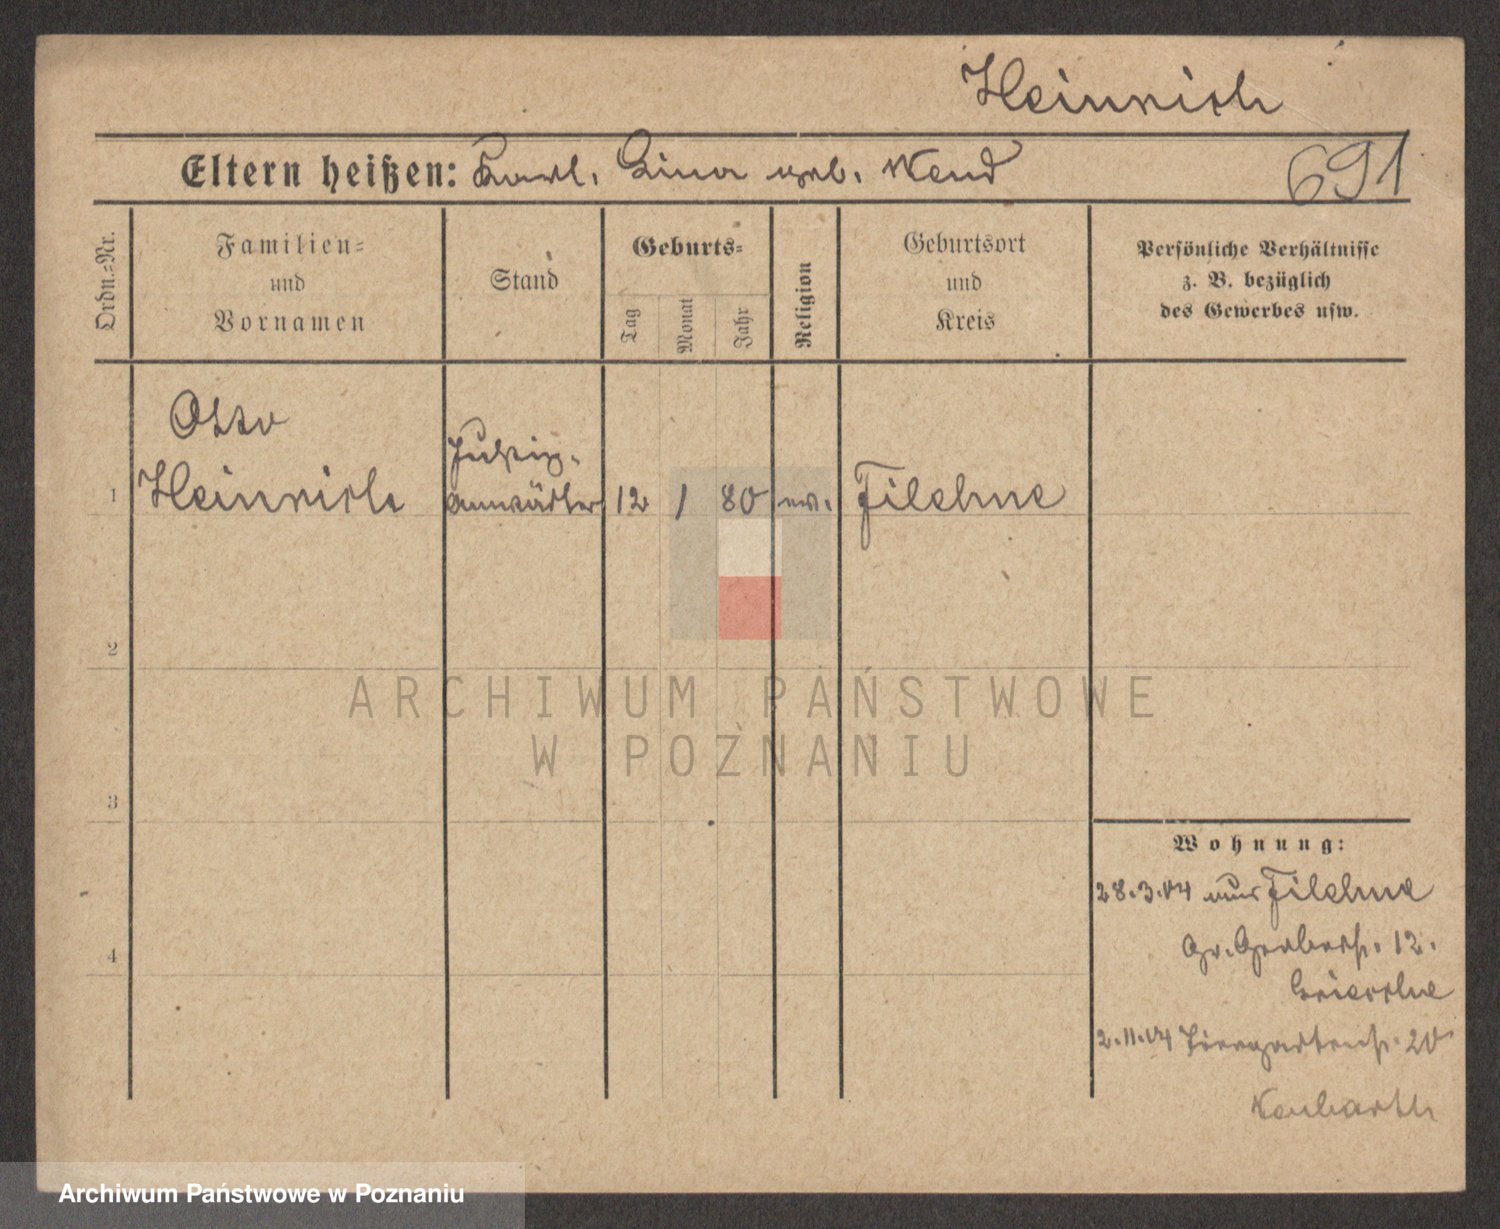 Heinrich
Eltern heißen: Karl, Lina geb. Wend
691
Ordn.=Nr.
Familien=
und
Vornamen
Stand
Geburts=
Tag
Monat
Jahr
Religion
Geburtsort
und
Kreis
Persönliche Verhältnisse
z. B. bezüglich
des Gewerbes usw.
Otto
1 Heinrich
Justiz-
anwärter
12 1 80 ev. Filehne
2
ARCHIWUM PAŃSTWOWE
W POZNANIU
3
Wohnung:
28.3.04 aus Filehne
4
Gr. Gerberstr. 12.
2.11.04 Tiergartenstr. 20
Archiwum Państwowe w Poznaniu